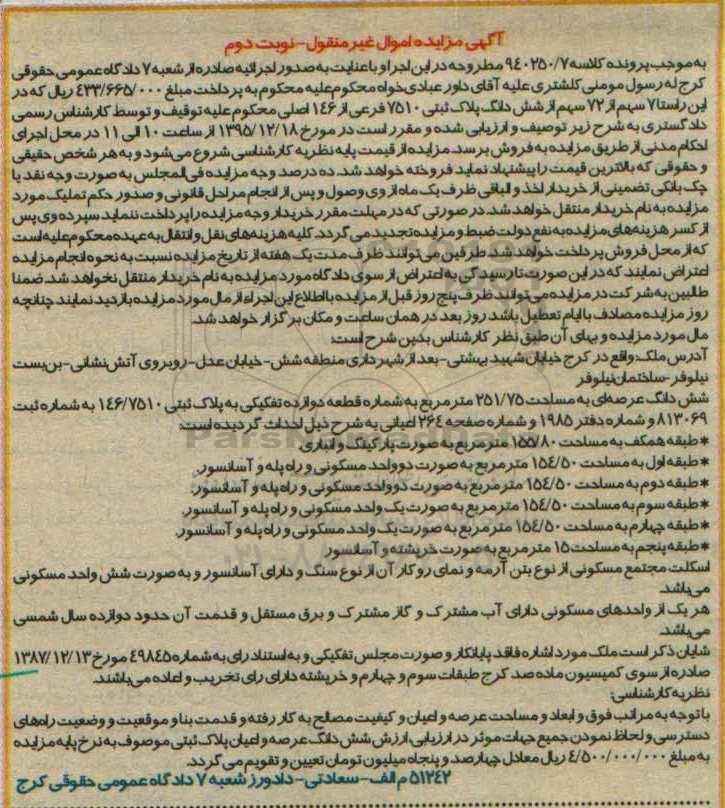 آگهی مزایده اموال غیر منقول-نوبت دوم
به موجب پرونده کلاسه ۹۴۰۲۵۰/۷ مطروحه در این اجرا و با عنایت به صدور اجرائیه صادره از شعبه ۷ دادگاه عمومی حقوقی
کرج له رسول مومنی کلشتری علیه آقای داور عبادی خواه محکوم علیه محکوم به پرداخت مبلغ ۴۳۳/۶۶۵/۰۰۰ ریال که در
این راستا ۷ سهم از ۷۲ سهم از شش دانگ پلاک ثبتی ۷۵۱۰ فرعی از ۱۴۶ اصلی محکوم علیه توقیف و توسط کارشناس رسمی
دادگستری به شرح زیر توصیف و ارزیابی شده و مقرر است در مورخ ۱۳۹۵/۱۲/۱۸ از ساعت ۱۰ الی ۱۱ در محل اجرای
احکام مدنی از طریق مزایده به فروش برسد. مزایده از قیمت پایه نظریه کارشناسی شروع می‌شود و به هر شخص حقیقی
و حقوقی که بالاترین قیمت را پیشنهاد نماید فروخته خواهد شد. ده درصد وجه مزایده فی‌المجلس به صورت وجه نقد یا
چک بانکی تضمینی از خریدار اخذ و الباقی ظرف یک ماه از وی وصول و پس از انجام مراحل قانونی و صدور حکم تملیک مورد
مزایده به نام خریدار منتقل خواهد شد. در صورتی که در مهلت مقرر خریدار وجه مزایده را پرداخت ننماید سپرده وی پس
از کسر هزینه‌های مزایده به نفع دولت ضبط و مزایده تجدید می‌گردد. کلیه هزینه‌های نقل و انتقال به عهده محکوم علیه است
که از محل فروش پرداخت خواهد شد. طرفین می‌توانند ظرف مدت یک هفته از تاریخ مزایده نسبت به نحوه انجام مزایده
اعتراض نمایند که در این صورت تا رسیدگی به اعتراض از سوی دادگاه مورد مزایده به نام خریدار منتقل نخواهد شد. ضمنا
طالبین به شرکت در مزایده می‌توانند ظرف پنج روز قبل از مزایده با اطلاع این اجرا از مال مورد مزایده بازدید نمایند چنانچه
روز مزایده مصادف با ایام تعطیل باشد روز بعد در همان ساعت و مکان برگزار خواهد شد.
مال مورد مزایده و بهای آن طبق نظر کارشناس بدین شرح است:
آدرس ملک: واقع در کرج خیابان شهید بهشتی-بعد از شهرداری منطقه شش-خیابان عدل-روبروی آتش‌نشانی-بن‌بست
نیلوفر-ساختمان نیلوفر
شش دانگ عرصه‌ای به مساحت ۲۵۱/۷۵ متر مربع به شماره قطعه دوازده تفکیکی به پلاک ثبتی ۱۴۶/۷۵۱۰ به شماره ثبت
۸۱۳۰۶۹ و شماره دفتر ۱۹۸۵ و شماره صفحه ۲۶۴ اعیانی به شرح ذیل احداث گردیده است:
*طبقه همکف به مساحت ۱۵۵/۸۰ متر مربع به صورت پارکینگ و انباری.
*طبقه اول به مساحت ۱۵۴/۵۰ متر مربع به صورت دو واحد مسکونی و راه پله و آسانسور.
*طبقه دوم به مساحت ۱۵۴/۵۰ متر مربع به صورت دو واحد مسکونی و راه پله و آسانسور.
*طبقه سوم به مساحت ۱۵۴/۵۰ متر مربع به صورت یک واحد مسکونی و راه پله و آسانسور.
*طبقه چهارم به مساحت ۱۵۴/۵۰ متر مربع به صورت یک واحد مسکونی و راه پله و آسانسور.
*طبقه پنجم به مساحت ۱۵ متر مربع به صورت خرپشته و آسانسور
اسکلت مجتمع مسکونی از نوع بتن آرمه و نمای روکار آن از نوع سنگ و دارای آسانسور و به صورت شش واحد مسکونی
می‌باشد.
هر یک از واحدهای مسکونی دارای آب مشترک و گاز مشترک و برق مستقل و قدمت آن حدود دوازده سال شمسی
می‌باشد.
شایان ذکر است ملک مورد اشاره فاقد پایانکار و صورت مجلس تفکیکی و به استناد رای به شماره ۴۹۸۴۵ مورخ ۱۳۸۷/۱۲/۱۳
صادره از سوی کمیسیون ماده صد کرج طبقات سوم و چهارم و خرپشته دارای رای تخریب و اعاده می‌باشند.
نظریه کارشناسی:
با توجه به مراتب فوق و ابعاد و مساحت عرصه و اعیان و کیفیت مصالح به کار رفته و قدمت بنا و موقعیت و وضعیت راه‌های
دسترسی و لحاظ نمودن جمیع جهات موثر در ارزیابی ارزش شش دانگ عرصه و اعیان پلاک ثبتی موصوف به نرخ پایه مزایده
به مبلغ ۴/۵۰۰/۰۰۰/۰۰۰ ریال معادل چهارصد و پنجاه میلیون تومان تعیین و تقویم می‌گردد.
۵۱۲۴۲ م الف-سعادتی-دادورز شعبه ۷ دادگاه عمومی حقوقی کرج